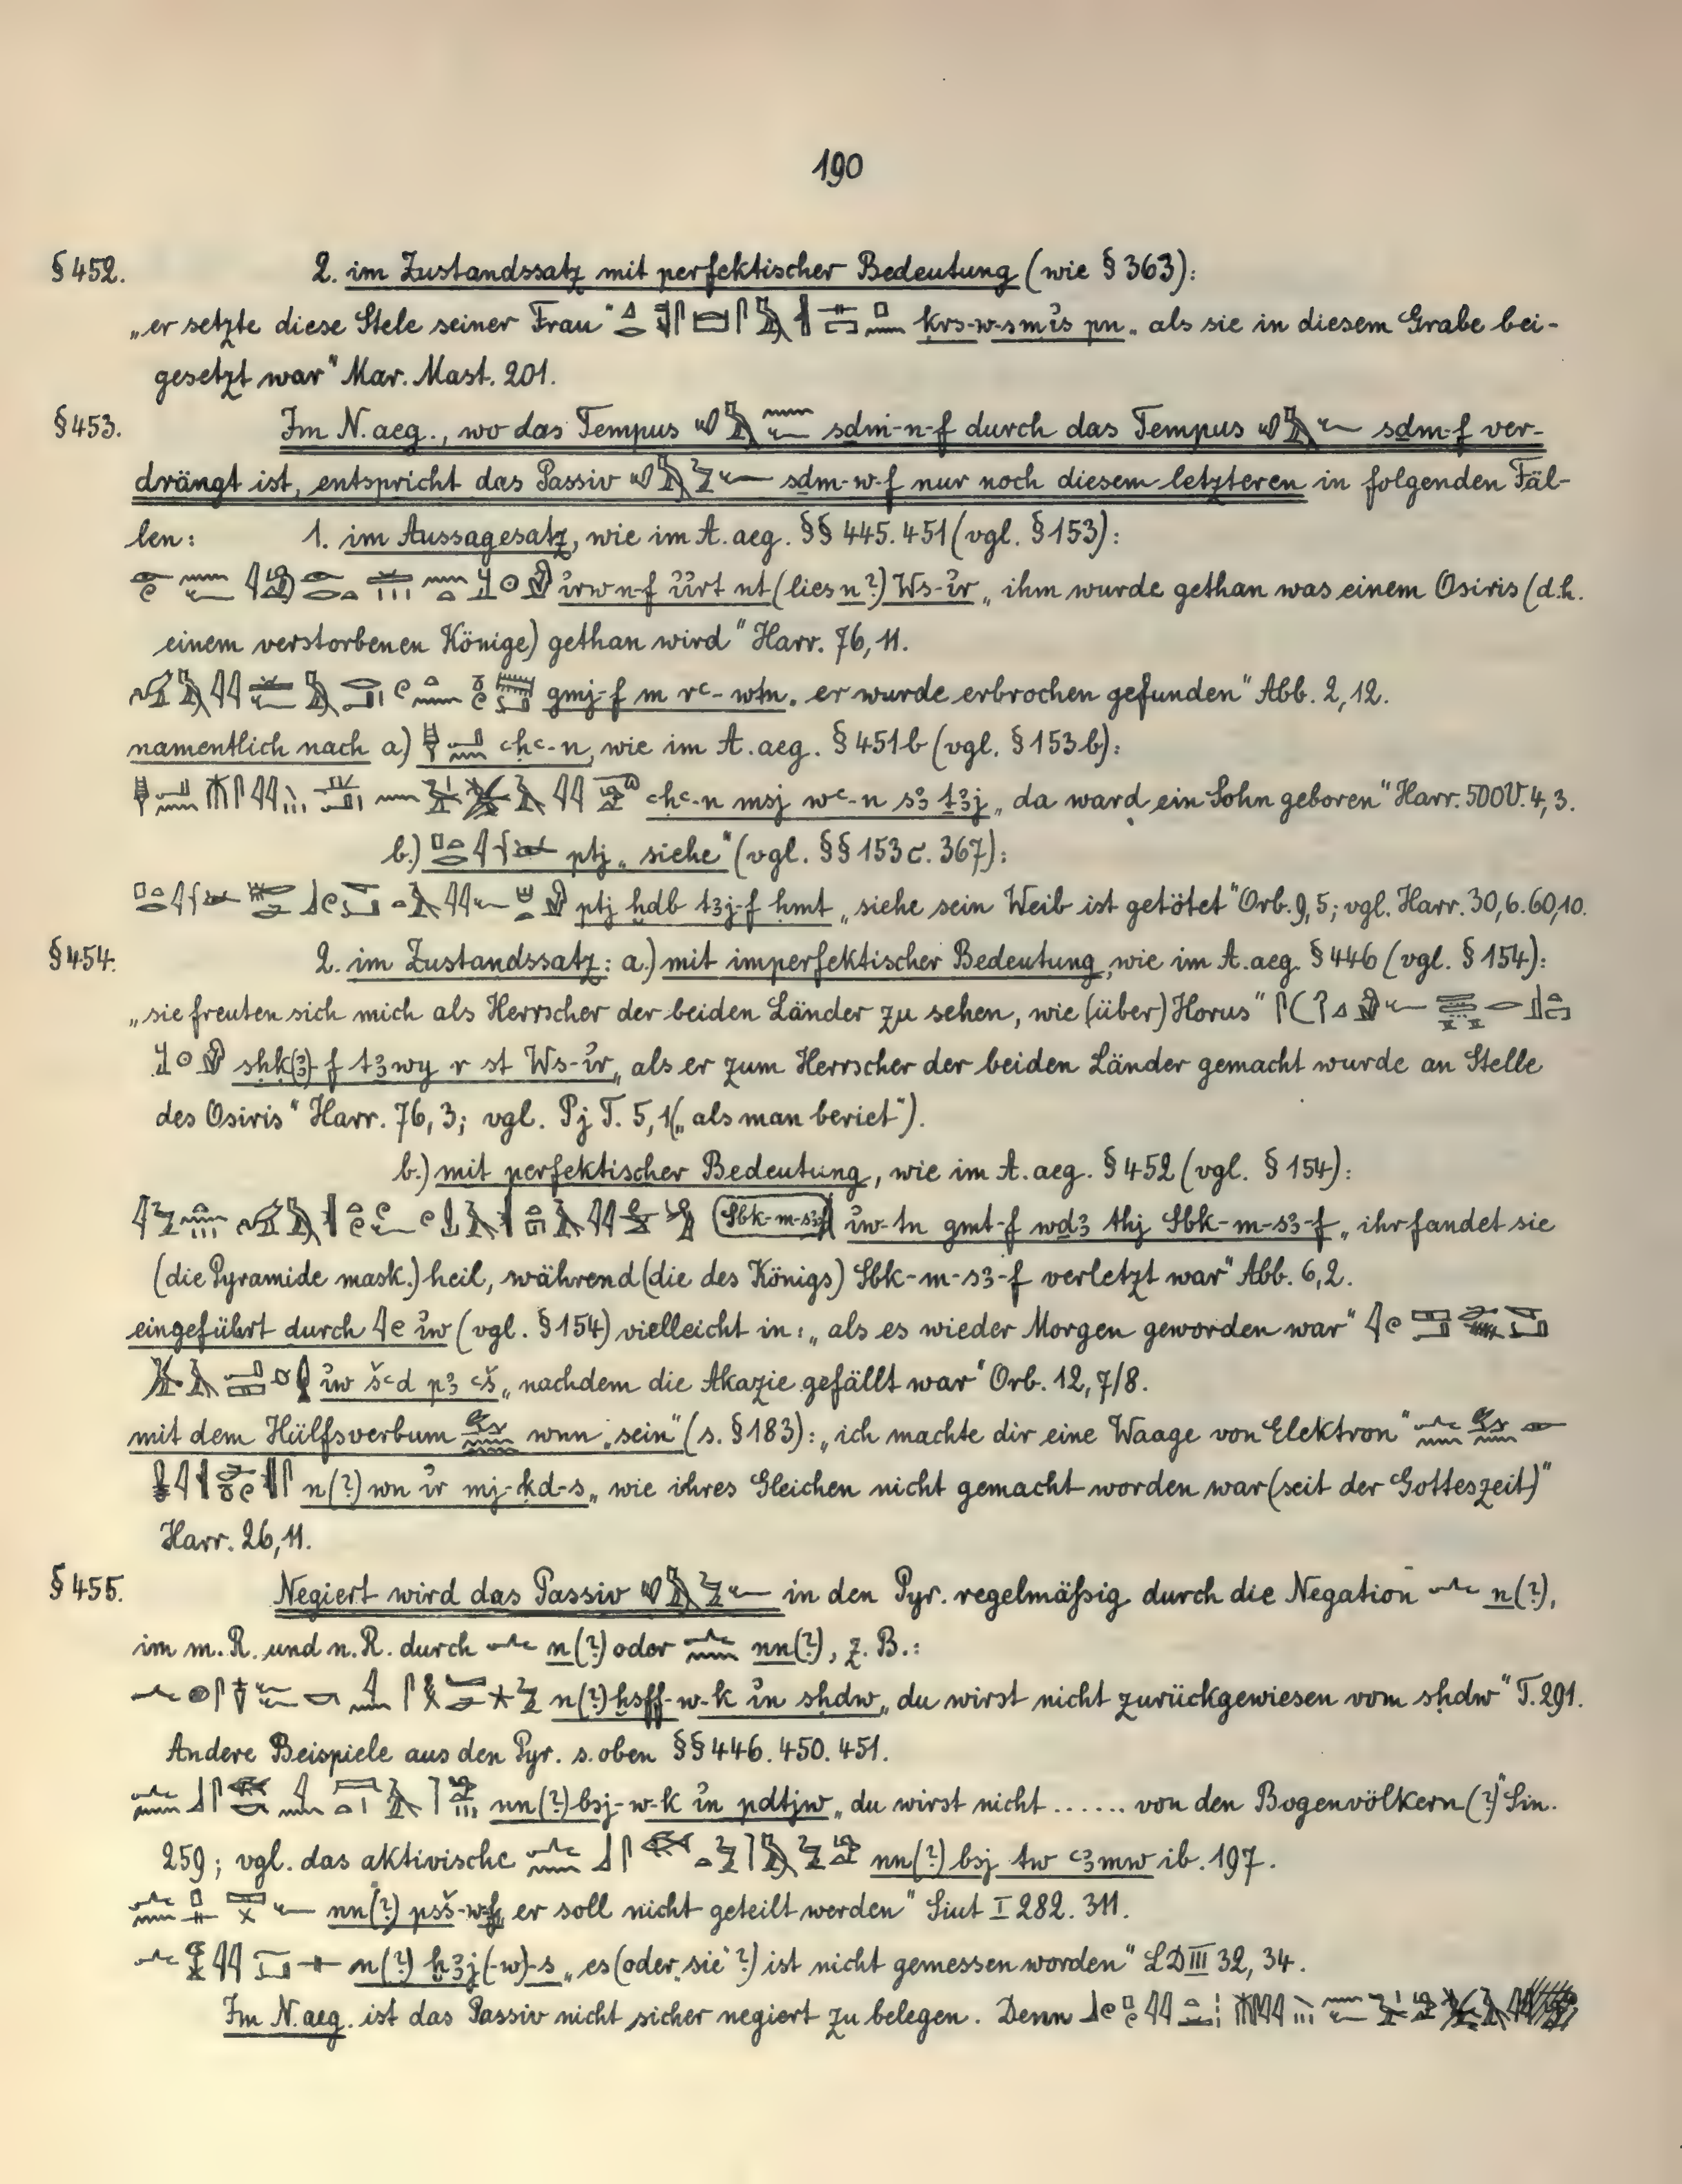 190
§ 452. 2. im Zustandssatz mit perfektischer Bedeutung (wie § 363):
„er setzte diese Stele seiner Frau" ḳrs-w-s m ỉs pn „als sie in diesem Grabe bei-
gesetzt war" Mar. Mast. 201.
§ 453. Im N.aeg., wo das Tempus sḏm-n-f durch das Tempus sḏm-f ver-
drängt ist, entspricht das Passiv sḏm-w-f nur noch diesem letzteren in folgenden Fäl-
len: 1. im Aussagesatz, wie im A.aeg. §§ 445. 451 (vgl. § 153):
ỉrw n-f ỉỉrt nt (lies n?) Ws-ỉr „ihm wurde gethan was einem Osiris (d.h.
einem verstorbenen Könige) gethan wird" Harr. 76, 11.
gmj-f m rꜥ-wtn „er wurde erbrochen gefunden" Abb. 2, 12.
namentlich nach a) ꜥḥꜥ-n, wie im A.aeg. § 451 b (vgl. § 153 b):
ꜥḥꜥ-n msj wꜥ-n sꜣ ṯꜣj „da ward ein Sohn geboren" Harr. 500 V. 4, 3.
b.) ptj „siehe" (vgl. §§ 153 c. 367):
ptj ḫdb tꜣj-f ḥmt „siehe sein Weib ist getötet" Orb. 9, 5; vgl. Harr. 30, 6. 60, 10.
§ 454. 2. im Zustandssatz: a.) mit imperfektischer Bedeutung, wie im A.aeg. § 446 (vgl. § 154):
„sie freuten sich mich als Herrscher der beiden Länder zu sehen, wie (über) Horus"
sḥḳ(ꜣ)-f tꜣwy r st Ws-ỉr „als er zum Herrscher der beiden Länder gemacht wurde an Stelle
des Osiris" Harr. 76, 3; vgl. Pj T. 5, 1 („als man beriet").
b.) mit perfektischer Bedeutung, wie im A.aeg. § 452 (vgl. § 154):
Sbk-m-sꜣ-f ỉw-tn gmt-f wḏꜣ thj Sbk-m-sꜣ-f „ihr fandet sie
(die Pyramide mask.) heil, während (die des Königs) Sbk-m-sꜣ-f verletzt war" Abb. 6, 2.
eingeführt durch ỉw (vgl. § 154) vielleicht in: „als es wieder Morgen geworden war"
ỉw šꜥd pꜣ ꜥš „nachdem die Akazie gefällt war" Orb. 12, 7/8.
mit dem Hülfsverbum wnn „sein" (s. § 183): „ich machte dir eine Waage von Elektron"
n(?) wn ỉr mj-ḳd-s „wie ihres Gleichen nicht gemacht worden war (seit der Gotteszeit)"
Harr. 26, 11.
§ 455. Negiert wird das Passiv in den Pyr. regelmäßig durch die Negation n(?),
im m.R. und n.R. durch n(?) oder nn(?), z. B.:
n(?) ḫsff-w-k ỉn sḥdw „du wirst nicht zurückgewiesen vom sḥdw" T. 291.
Andere Beispiele aus den Pyr. s. oben §§ 446. 450. 451.
nn(?) bsj-w-k ỉn pdtjw „du wirst nicht ...... von den Bogenvölkern (?)" Sin.
259; vgl. das aktivische nn(?) bsj tw ꜥꜣmw ib. 197.
nn(?) psš-w-f „er soll nicht geteilt werden" Siut I 282. 311.
n(?) ḫꜣj(-w)-s „es (oder „sie"?) ist nicht gemessen worden" LD III 32, 34.
Im N.aeg. ist das Passiv nicht sicher negiert zu belegen. Denn